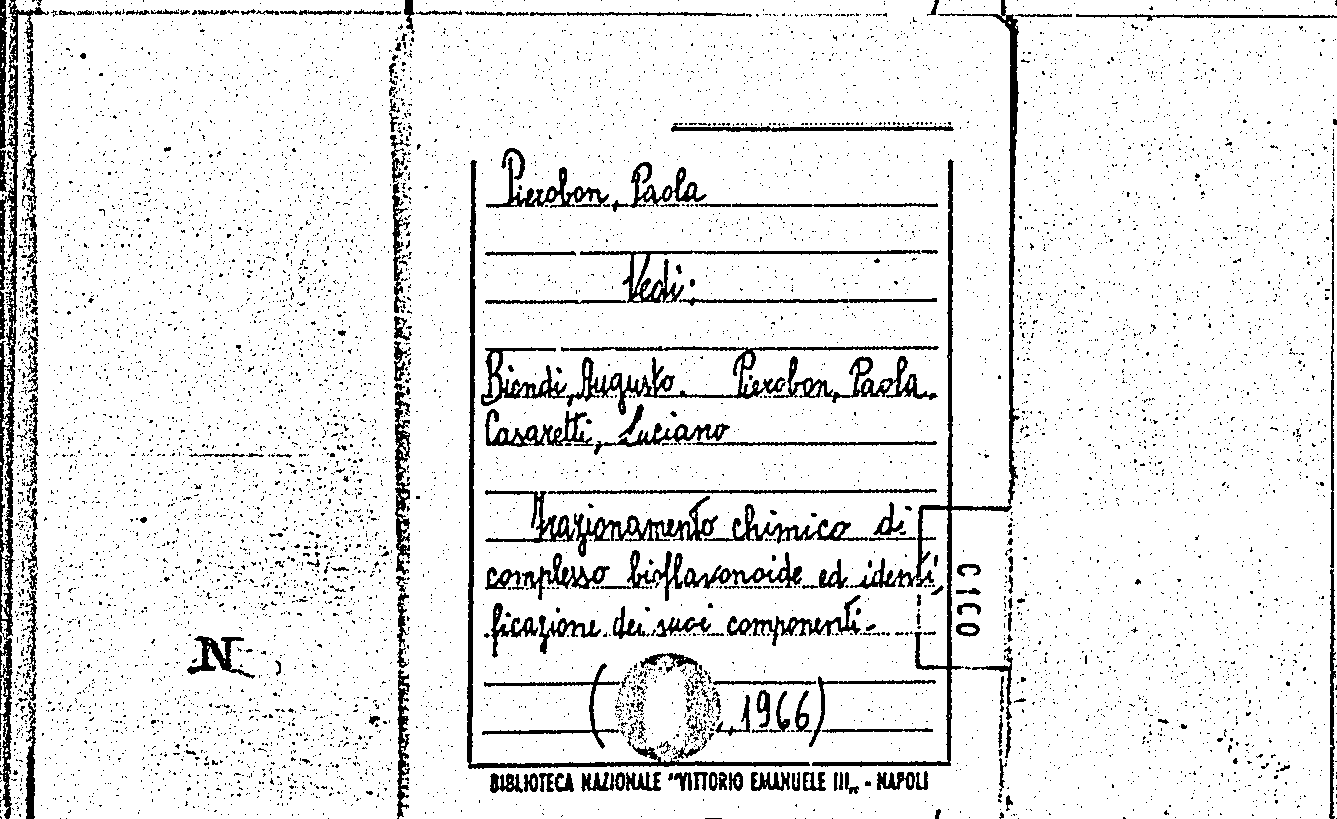 Pierobon, Paola
Vedi:
Biondi, Augusto. Pierobon, Paola.
Casaretti, Luciano
Frazionamento chimico di
complesso bioflavonoide ed identi
ficazione dei suoi componenti.
( , 1966)
BIBLIOTECA NAZIONALE "VITTORIO EMANUELE III„ - NAPOLI
N